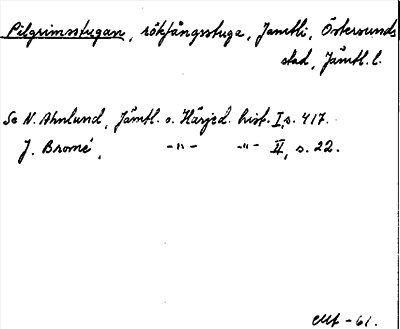 Pilgrimsstugan, rökfångsstuga, Jamtli, Östersunds
stad, Jämtl. l.
Se N. Ahnlund, Jämtl. o. Härjed. hist. I, s. 417.
J. Bromé, -"- -"- II, s. 22.
-61.